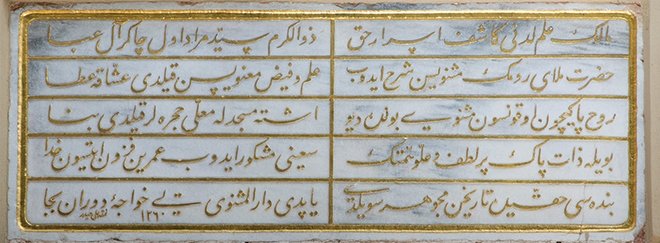 مالك علم لدنی کاشف اسرار حق
ذو الکرم سید مراد اول چاکر آل عبا
حضرت ملای رومك مثنویسن شرح ایدوب
علم و فیض معنویسن قیلدی عشاقه عطا
روح پاکیچون اوقونسون مثنوی بونده دیو
اشته مسجدله معلّی حجره لر قیلدی بنا
بویله ذات پاك پر لطف و علو همتك
سعینی مشکور ایدوب عمرین فزون ایتسون خدا
بنده سی تاریخن مجوهر سویلدی
یاپدی دار المثنوی یی خواجهٔ دوران بجا
۱۲۶۰